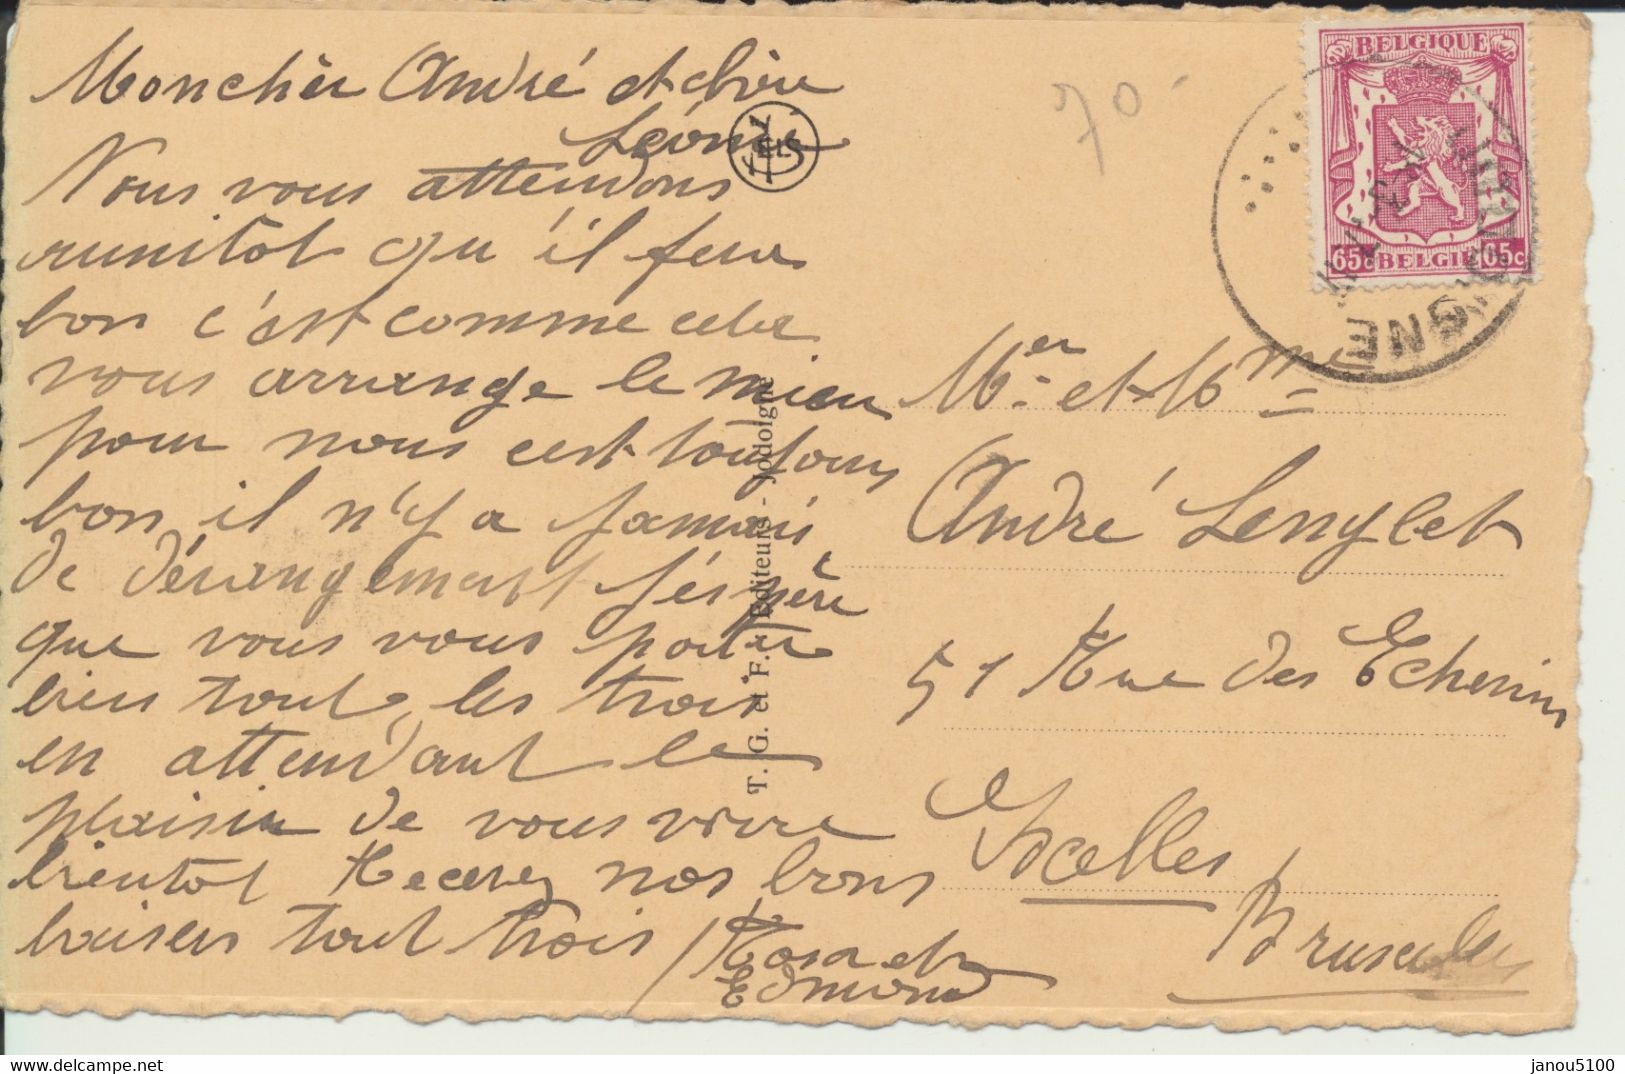 Moncher André et chère
Léonie
Nous vous attendons
aussitot qu'il fera
bon c'est comme cela
vous arrange le mieu
pour nous c'est toujours
bon il n'y a jamais
de dérangement j'éspère
que vous vous porter
bien tout les trois
en attendant le
plaisir de vous voire
bientot Recevez nos bons
baisers tout trois
Rosa et
Edmond
ELS
T. G. et F. Editeurs - Jodoigne
70
BELGIQUE
65c BELGIE 65c
Mer et Mme
André Lenglet
51 Rue des Echevins
Ixelles
Bruxelles
janou5100